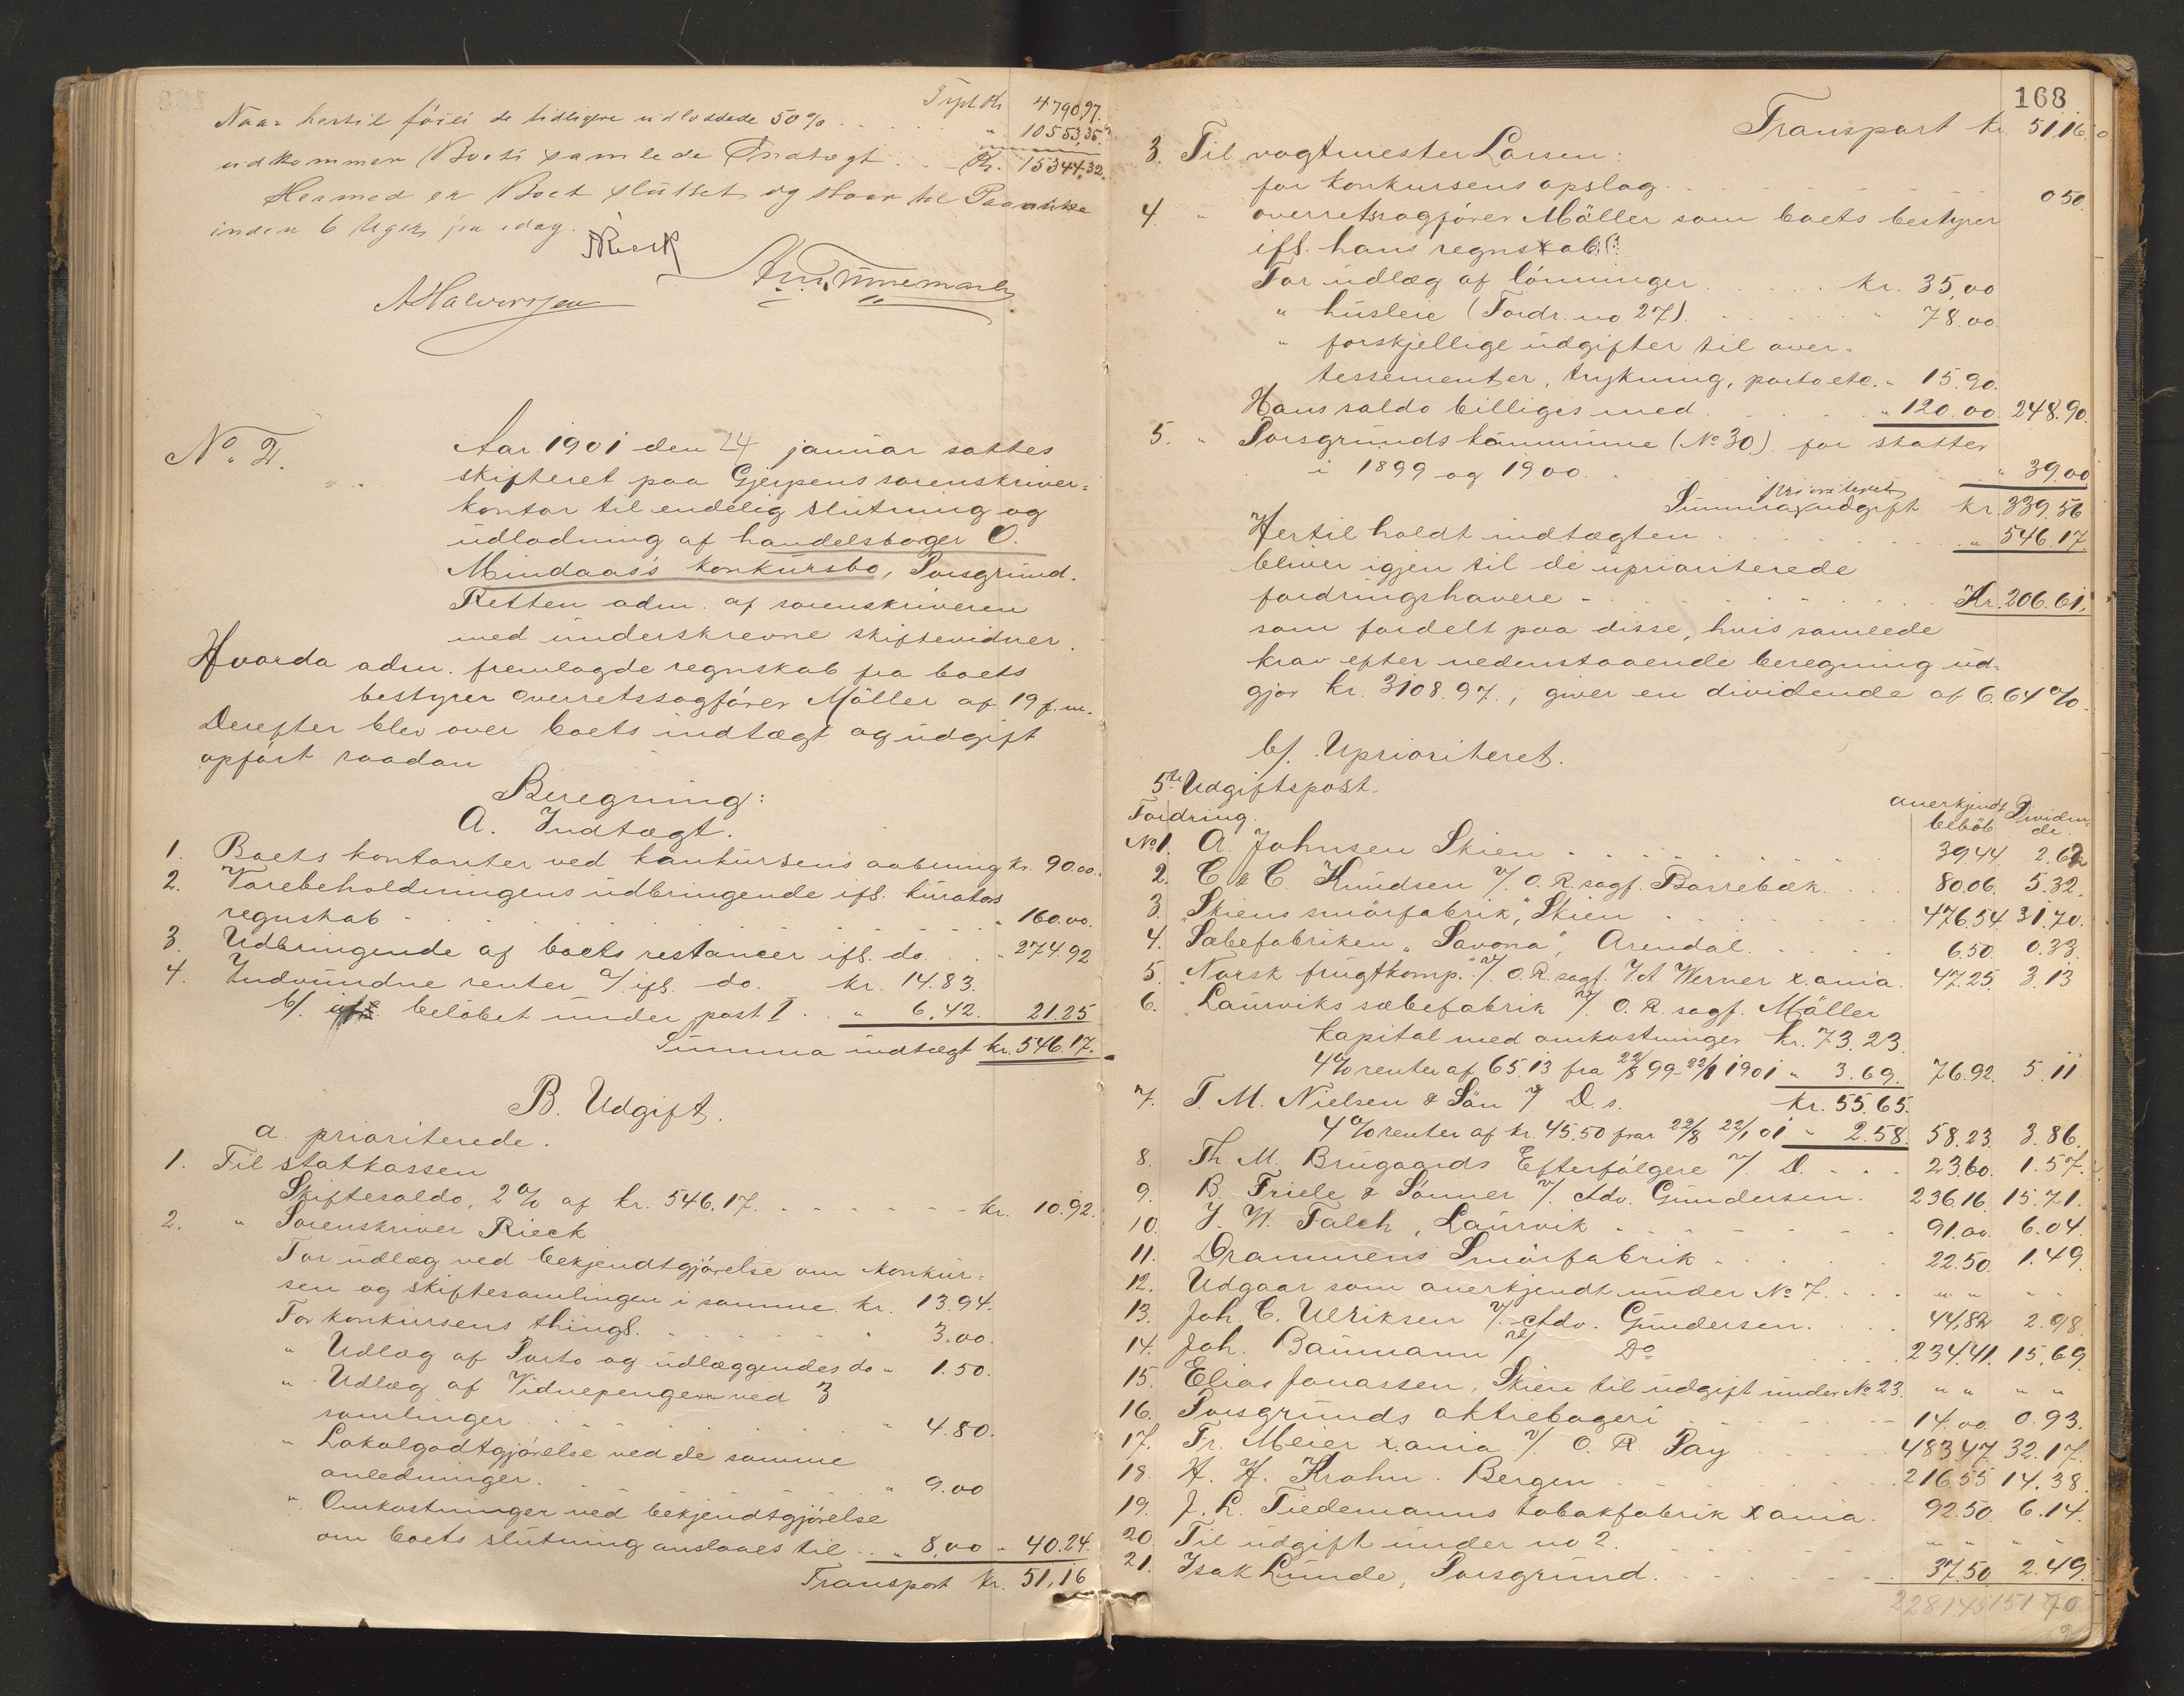 Trpt Kr. 4790,97.
Naar hertil föies de tidligere udloddede 50% . . . " 10553,35.
udkommer Boets samlede Indtægt . . Kr. 15344,32.
Hermed er Boet sluttet og staar til Paaanke
inden 6 Uger fra idag.
Rieck
AHalvorsen
No. 2.
Aar 1901 den 24 januar sattes
skifteret paa Gjerpens sorenskriver=
kontor til endelig slutning og
udlodning af handelsbager O.
Mindaas's konkursbo, Porsgrund.
Retten adm. af sorenskriveren
med underskrevne skiftevidner.
Hvorda adm. fremlagde regnskab fra boets
bestyrer overretssagförer Möller af 19 f.m.
Derefter blev over boets indtægt og udgift
opfört saadan
Beregning:
A. Indtægt.
1. Boets kontanter ved konkursens aabning kr. 90.00.
2. Varebeholdningens udbringende ifl. kurators
regnskab . . . " 160.00.
3. Udbringende af boets restancer ifl. do. . . " 274.92
4. Indvundne renter a/ ifl. do. kr. 14.83.
b/. belöbet under post I . . " 6.42. 21.25
Summa indtægt kr. 546.17.
B. Udgift.
a. prioriterede.
1. Til statkassen
Skiftesaldo, 2% af kr. 546.17. . . . kr. 10.92.
2. " Sorenskriver Rieck
For udlæg ved bekjendtgjörelse om konkur=
sen og skiftesamlingen i samme kr. 13.94.
For konkursens thingl. . . . " 3.00.
" Udlæg af Porto og udlæggendes do " 1.50.
" Udlæg af Vidnepenge ved 3
samlinger . . . " 4.80.
" Lokalgodtgjörelse ved de samme
anledninger. . . . " 9.00
" Omkostninger ved bekjendtgjörelse
om boets slutning anslaaes til . . " 8,00 " 40.24.
Transport kr. 51,16
168
Transport kr. 51,16
3. Til vagtmester Larsen:
for konkursens opslag. . . . 0 50.
4. " overretssagförer Möller som boets bestyrer
ifl. hans regnskab:
For udlæg af lönninger . . . kr. 35,00
" husleie (Fordr. no 27) . . . " 78.00.
" forskjellige udgifter til aver=
tessementer, trykning, porto etc. " 15.90.
Hans saldo billiges med . . . " 120.00. 248.90.
5. " Porsgrunds kommune (No 30) for skatter
i 1899 og 1900. . . . " 39.00
prioriteret
Summa udgift kr. 339.56
Hertil holdt indtægten . . . " 546.17.
bliver igjen til de uprioriterede
fordringshavere - . . . Kr. 206.61.
som fordelt paa disse, hvis samlede
krav efter nedenstaaende beregning ud=
gjør kr. 3108.97., giver en dividende af 6.64%.
b/. Uprioriteret.
5te Udgiftspost.
Fordring anerkjendt belöb Dividen=de.
No 1. A. Johnsen Skien . . . 39.44. 2.62
2. C & C. Knudsen v/. O. R. sagf. Borrebæk. . . 80.06. 5.32.
3. "Skiens smörfabrik", Skien . . . 476.54 31.70.
4. Sæbefabriken "Savona", Arendal . . . 6.50. 0.33.
5. "Norsk frugtkomp." v/. O. R. sagf. Werner X.ania. 47.25. 3.13
6. "Laurviks sæbefabrik v/. O. R. sagf. Möller
kapital med omkostninger kr. 73.23.
4% renter af 65.13 fra 22/8 99-22/1 1901 " 3.69. 76.92. 5.11
7. T. M. Nielsen & Sön v/ D.s. kr. 55.65.
4% renter af kr. 45.50 fra 22/8 22/1 01 " 2.58. 58.23. 3.86.
8. Th. M. Brugaards Efterfölgere v/. D. . . . 23.60. 1.57.
9. B. Friele & Sönner v/. Adv. Gundersen. 236.16. 15.71.
10. J. W. Falch, Laurvik . . . 91.00. 6.04.
11. Drammens Smörfabrik . . . 22.50. 1.49.
12. Udgaar som anerkjendt under No 7. . . . " " " "
13. Joh C. Ulriksen v/. Adv. Gundersen. . . 44,82 2.98.
14. Joh. Baumann v/ Do . . . 234.41. 15,69.
15. Elias Jonassen, Skien til udgift under No 23. " " " "
16. Porsgrunds aktiebageri . . . 14.00 0.93.
17. Fr. Meier X.ania v/. O. R. Pay . . . 483.47. 32.17.
18. H. H. Krohn. Bergen . . . 216.55 14.38.
19. J. L. Tiedemanns tobakfabrik X ania. 92.50. 6.14.
20. Til udgift under no 2. . . . " " " "
21. Isak Lunde, Porsgrund. . . . 37.50 2.49.
2281.45 151 70